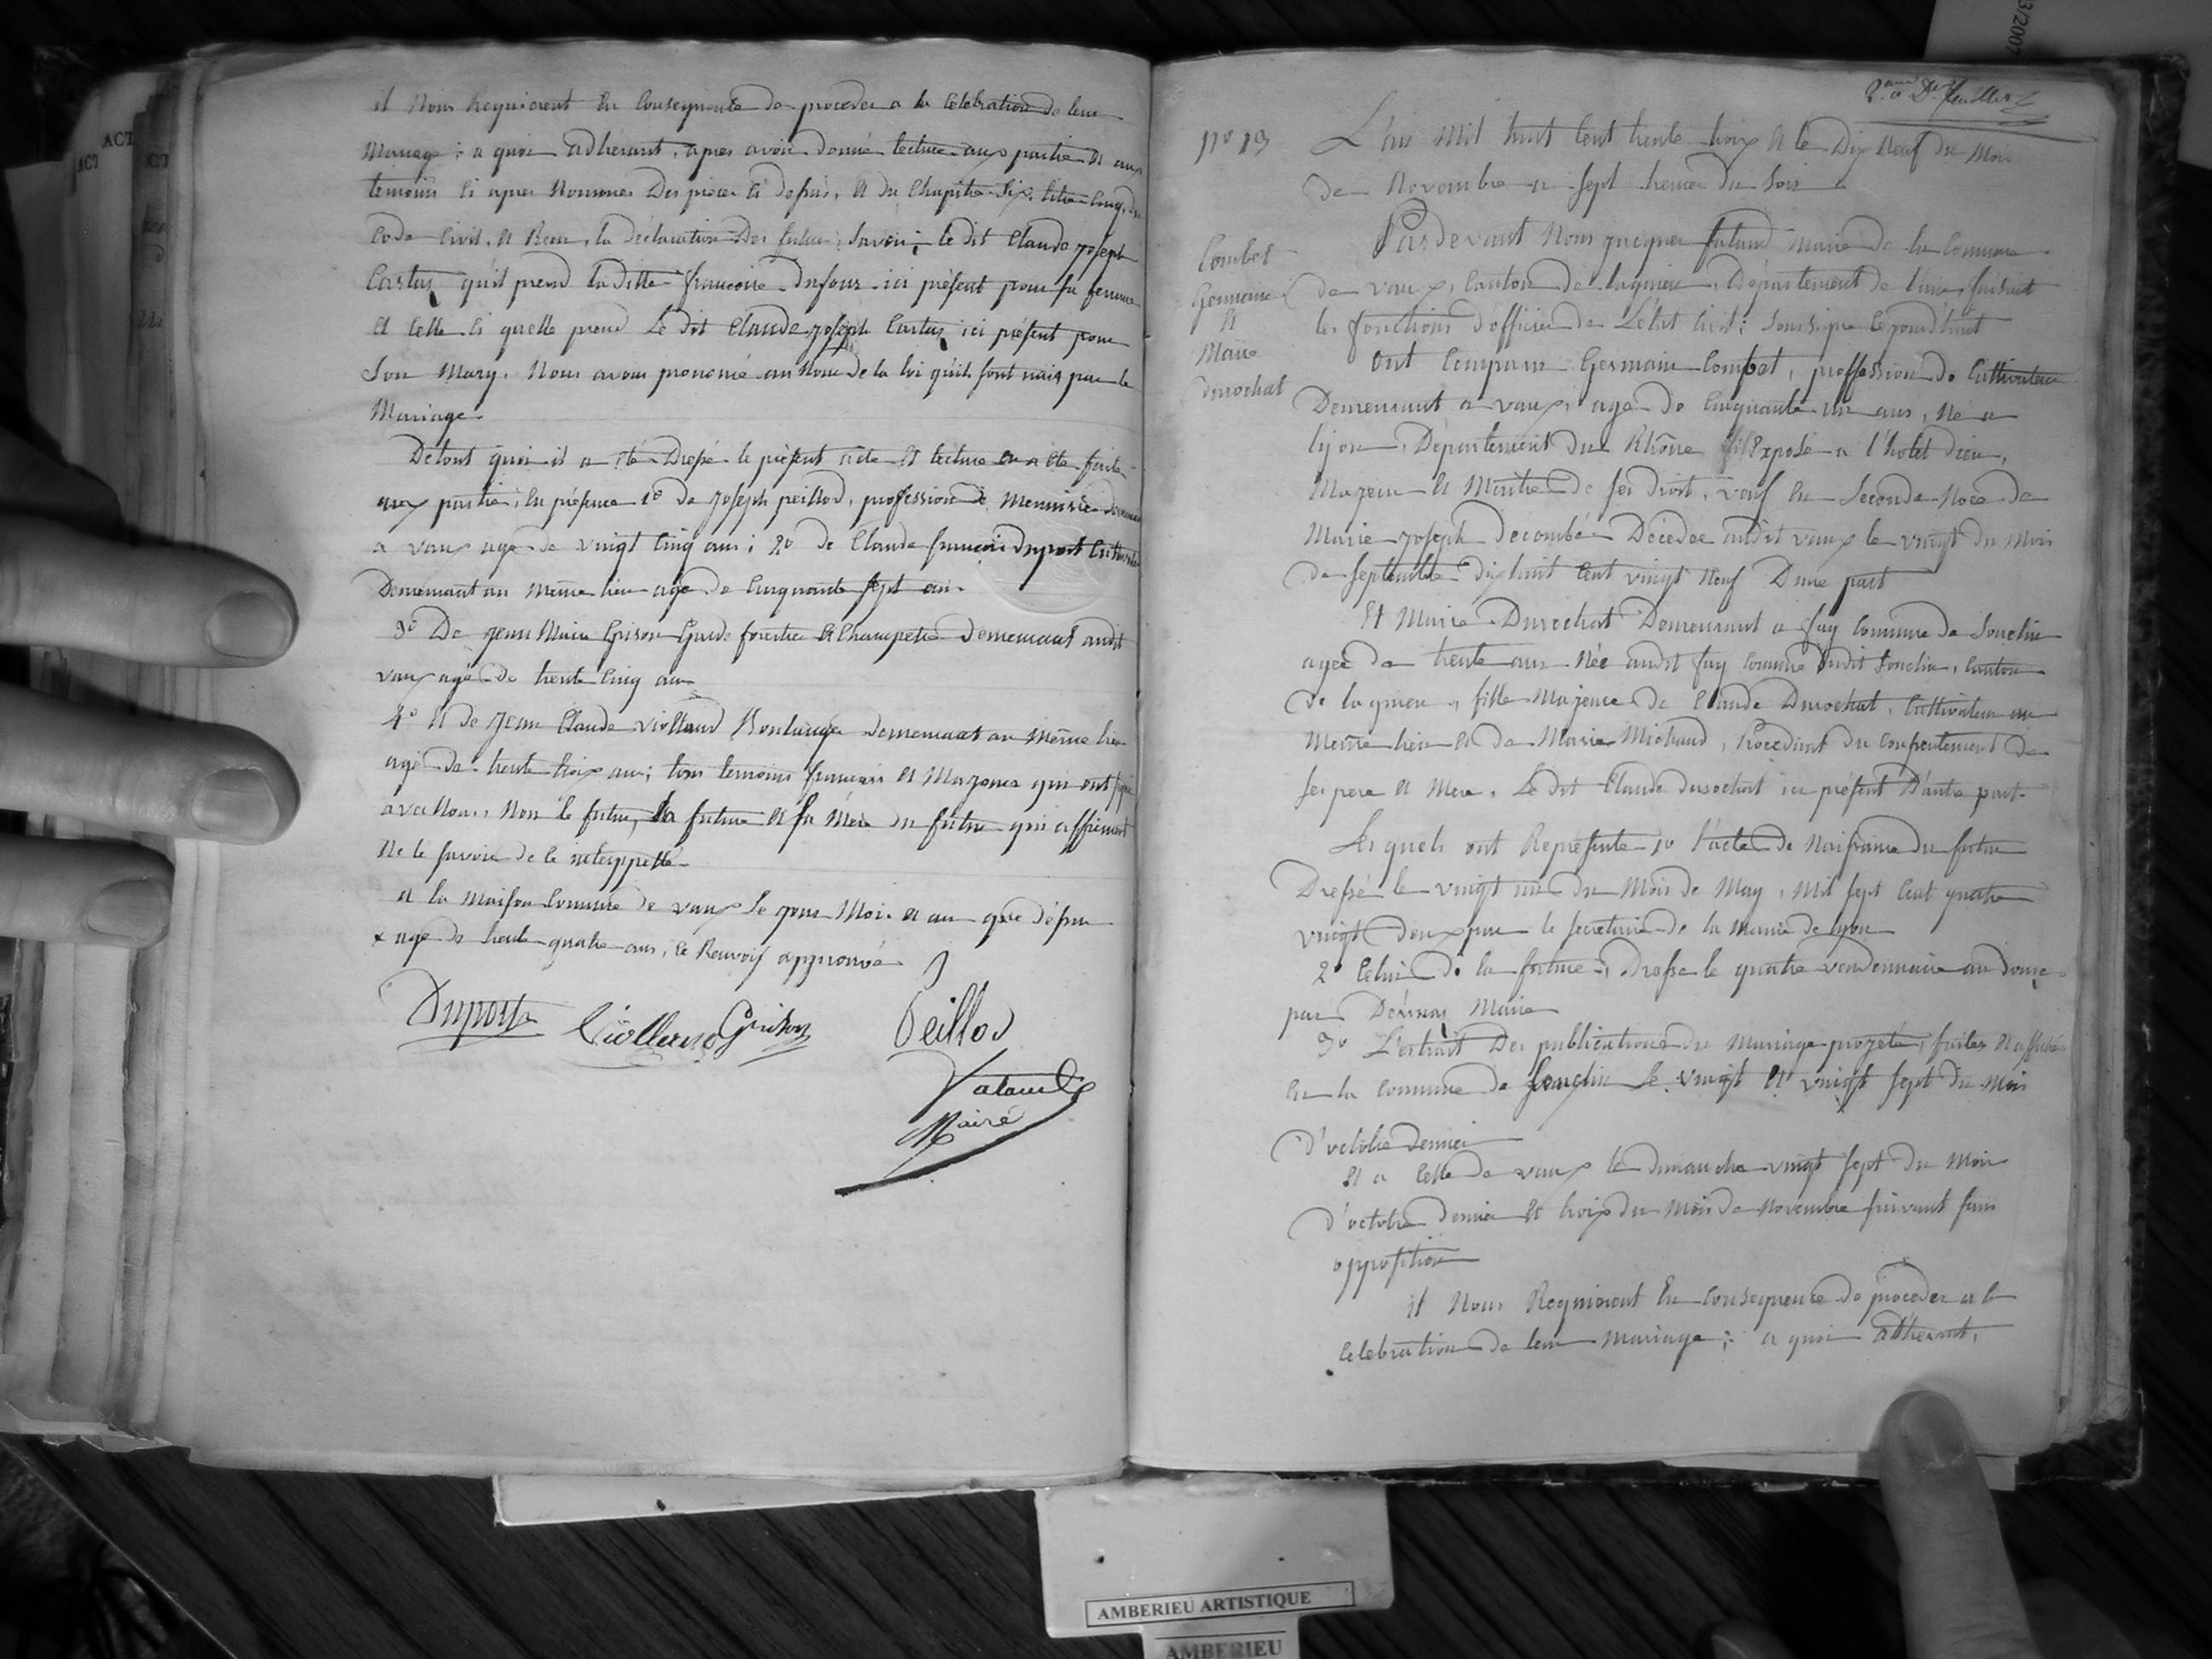 il Nous Requierent En Consequence de proceder a la Celebration de leur
Mariage ; a quoi adherant, apres avoir donné lecture aux partie et aux
temoins ci apres Nommés Des pieces ci dessus, et du Chapitre Six, titre Cinq, du
Code Civil, et Recu, la déclaration Des futurs ; Savoir ; le dit Claude Joseph
qu'il prend la ditte francoise Dufour ici présent pour sa femme
et Celle ci quelle prend Le dit Claude Joseph ici présent pour
Son Mary. Nous avons prononcé au Nom de la loi qu'ils sont unis par le
Mariage
De tout quoi il a été Dressé le présent acte et lecture en a été faite
aux partie, En présence 1º de Joseph peillod, profession de Menuisier
a vaux agé de vingt Cinq ans ; 2º de Claude francois Duport
Demeurant au même lieu agé de Cinquante sept ans
3º De Jean Marie Grison Garde forestier et Champetre Demeurant audit
vaux agé de trente Cinq ans
4º et de Jean Claude Viollaud Boulanger demeurant au même lieu
agé de trente trois ans ; tous temoins francais et Majeurs qui ont signé
avec Nous, Non le futur, la future et sa Mère du futur qui affirment
Ne le savoir de ce interppellé
a la Maison Commune de vaux Le jour Mois et an que dessus
x agé de trente quatre ans, le Renvoy approuvé
Duport Viollaud Grison Peillod
fataud
Maire
2me et Der feuillet
Nº 19
L'an Mil huit Cent trente trois et le Dix Neuf du Mois
de Novembre a sept heures du Soir
Pardevant Nous Jacques fataud Maire de la Commune
Combet
Germain
et
Marie
Durochat
de vaux, Canton de Lagnieu, Département de l'ain, faisant
les fonctions d'officier de L'état Civil ; Soussigné
Ont Comparu Germain Combet, proffession de Cultivateur
Demeurant a vaux, agé de Cinquante un ans, Né a
lyon, Département du Rhône Exposé a l'hotel dieu,
Majeur et Maitre de ses Droit, veuf En Seconde Noce de
Marie Joseph Decombe Décédée audit vaux le vingt du Mois
de septembre dix huit Cent vingt Neuf D'une part
Et Marie Durochat Demeurant a fay Commune de Souclin
agée de trente ans Née audit fay Commune dudit Souclin, Canton
de lagnieu, fille Majeure de Claude Durochat, Cultivateur au
Même lieu et de Marie Michaud, Procedant du Consentement de
ses pere et Mere, Le dit Claude Durochat ici présent D'autre part
Lesquels ont Représenté 1º l'acte de Naissance du futur
Dressé le vingt un du Mois de May, Mil sept Cent quatre
vingt Deux par le secretaire de la Mairie de Lyon
2º Celui de la future, Dressé le quatre vendemiaire an Douze
par Maire
3º L'extrait Des publications du Mariage projeté, faites et affichés
En la Commune de Souclin Le vingt et vingt sept du Mois
D'octobre Dernier
Et a Celle de vaux le dimanche vingt sept du Mois
d'octobre dernier et trois du Mois de Novembre suivant sans
opposition
il Nous Requierent En Consequence de proceder a la
Celebration de leur Mariage ; a quoi adherant,
3/2007
ACT
ACT
AMBERIEU ARTISTIQUE
AMBERIEU